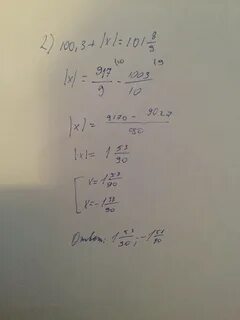 2) 100,3 + |x| = 101 8/9
|x| = 917/9 \10 - 1003/10 \9
|x| = 9170 - 9027/90
|x| = 1 53/90
[ x = 1 53/90
x = -1 53/90
Ответ: 1 53/90; -1 53/90